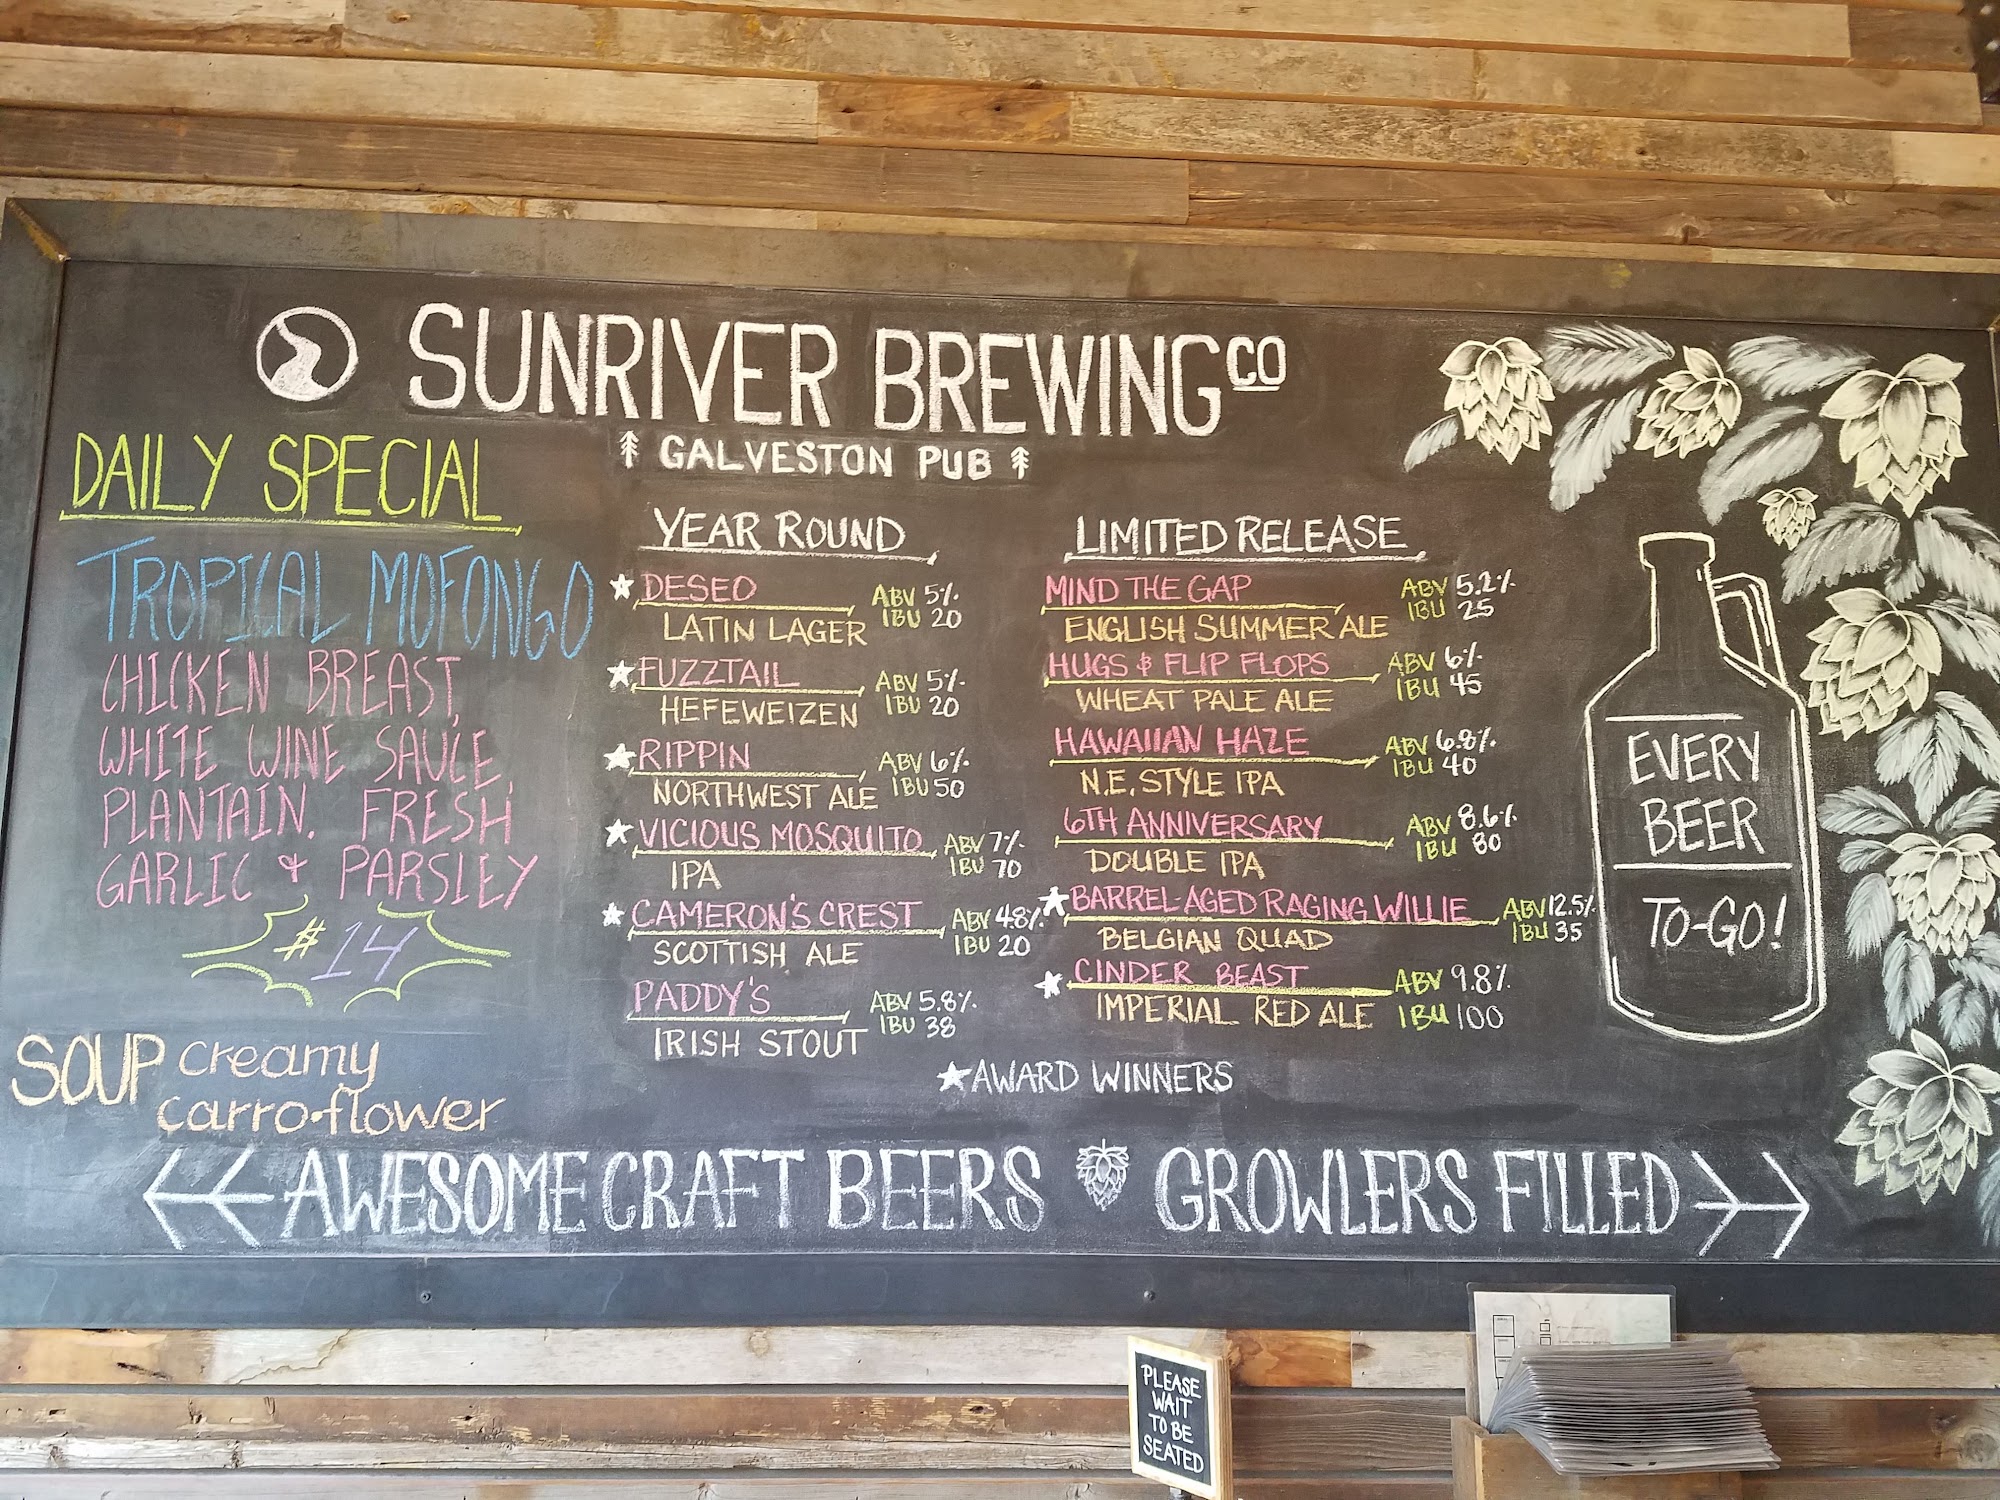 SUNRIVER BREWING CO
GALVESTON PUB
DAILY SPECIAL
TROPICAL MOFONGO
CHICKEN BREAST,
WHITE WINE SAUCE,
PLANTAIN. FRESH
GARLIC & PARSLEY
#14
SOUP creamy
carro·flower
YEAR ROUND
DESEO ABV 5%
LATIN LAGER IBU 20
FUZZTAIL ABV 5%
HEFEWEIZEN IBU 20
RIPPIN ABV 6%
NORTHWEST ALE IBU 50
VICIOUS MOSQUITO ABV 7%
IPA IBU 70
CAMERON'S CREST ABV 4.8%
SCOTTISH ALE IBU 20
PADDY'S ABV 5.8%
IRISH STOUT IBU 38
LIMITED RELEASE
MIND THE GAP ABV 5.2%
ENGLISH SUMMER ALE IBU 25
HUGS & FLIP FLOPS ABV 6%
WHEAT PALE ALE IBU 45
HAWAIIAN HAZE ABV 6.8%
N.E. STYLE IPA IBU 40
6TH ANNIVERSARY ABV 8.6%
DOUBLE IPA IBU 80
BARREL-AGED RAGING WILLIE ABV 12.5%
BELGIAN QUAD IBU 35
CINDER BEAST ABV 9.8%
IMPERIAL RED ALE IBU 100
AWARD WINNERS
EVERY
BEER
TO-GO!
AWESOME CRAFT BEERS GROWLERS FILLED
PLEASE
WAIT
TO BE
SEATED